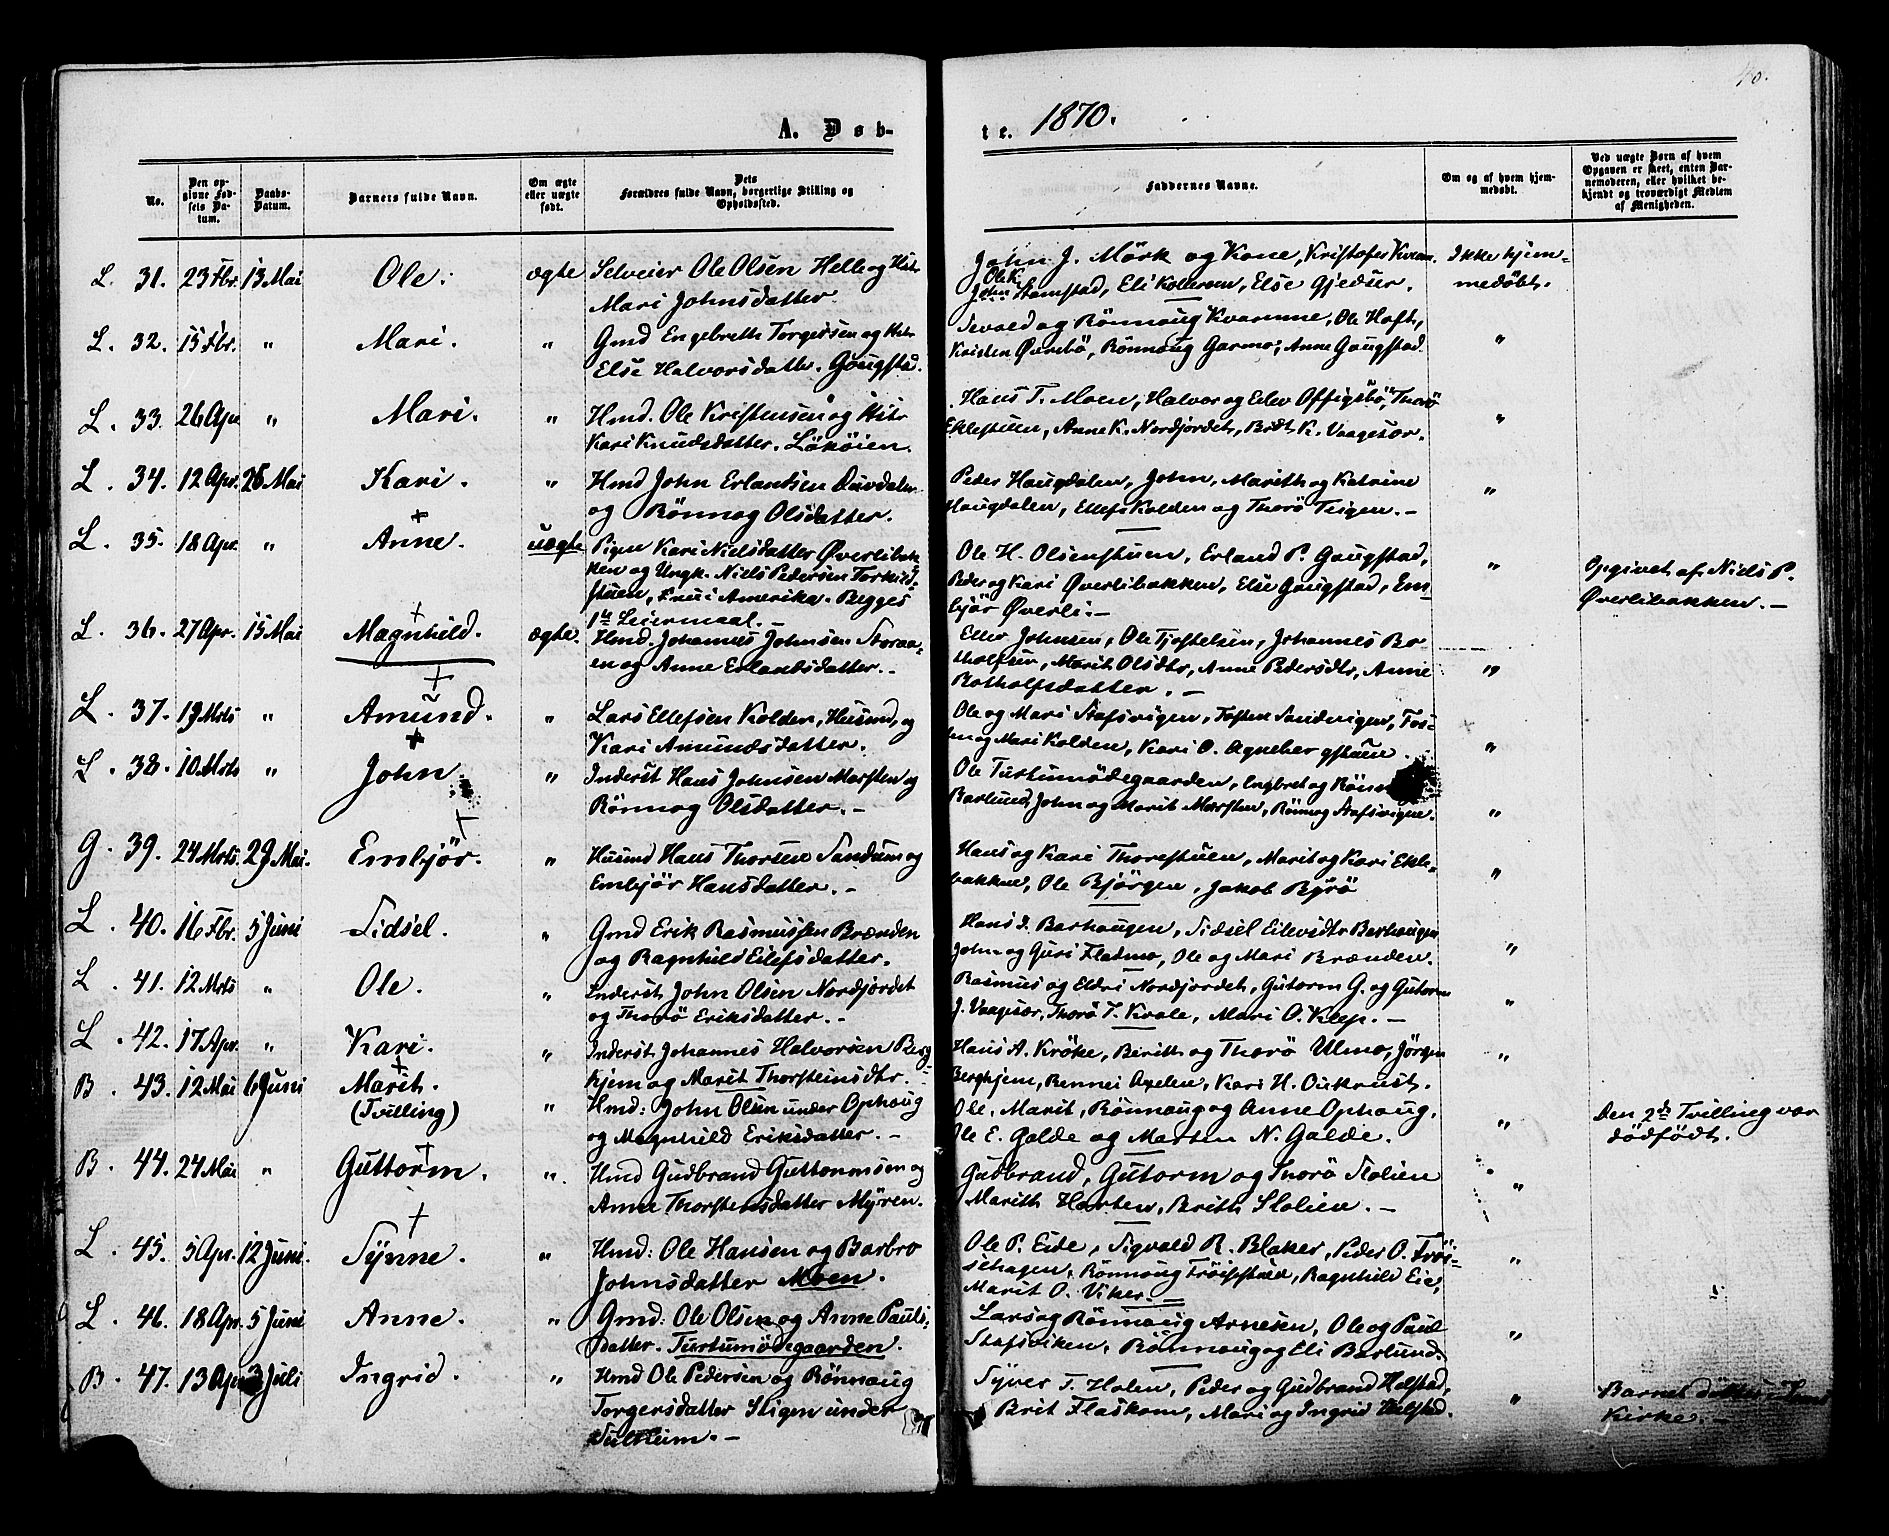 40.
A. Døb-
te. 1870.
No.
Den op-
givne Fød-
sels Da-
tum.
Daabs-
Datum.
Barnets fulde Navn.
Om ægte
eller uægte
født.
Dets
Forældres fulde Navn, borgerlige Stilling og
Opholdssted.
Faddernes Navne.
Om og af hvem hjem-
medøbt.
Ved uægte Børn af hvem
Opgaven er skeet, enten Bar-
nemoderen, eller hvilket be-
kjendt og troværdigt Medlem
af Menigheden.
L. 31. 23 Fbr. 13 Mai Ole. ægte Selveier Ole Olsen Helle og Hstr
Mari Johnsdatter.
John J. Mörk og Kone, Kristofer Kvam.
Ole K.
John Stamstad, Eli Kollersen, Else Gjedser.
Ikke hjem-
medöbt.
L. 32. 15 Fbr. " Mari. " Gmd Engebreth Torgersen og Hstr
Else Halvorsdatter. Gougstad.
Sevald og Rönnoug Kvamme, Ole Hoft,
Kristen Øvrebö, Rönnoug Garmo, Anne Gaugstad. "
L. 33. 26 Apr " Mari. " Hmd. Ole Kristensen og Hstr
Kari Knudsdatter. Lököien.
Hans T. Moen, Halvor og Eilev Offigsbö, Thorö
Eklestuen, Anne K. Nordjordet, Brit K. Vaagesar. "
L. 34. 12 Apr. 26 Mai Kari. " Hmd John Erlandsen Duvdalen
og Rönnog Olsdatter.
Peder Haugdalen, John, Marith og Katrine
Haugdalen, Ellef Kolden og Thorö Teigen. - "
L. 35. 18 Apr. " Anne. uægte Pigen Kari Nielsdatter Øverlibak-
ken og Ungk. Niels Pedersen Torkild-
stuen, nu i Amerika. Begges
1ste Leiermaal. -
Ole H. Olsenstuen, Erland P. Gaugstad,
Peder og Kari Øverlibakken, Else Gaugstad, Em-
björ Øverli. - "
Opgivet af Niels P.
Øverlibakken. -
L. 36. 27 Apr. 15 Mai Magnhild. ægte. Hmd. Johannes Johnsen Storaa-
en og Anne Erlandsdatter. -
Ellev Johnsen, Ole Tjostelsen, Johannes Bo-
tholfsen, Marit Olsdtr, Anne Pedersdtr, Anne
Botholfsdatter. - "
L. 37. 19 Mrts " Amund. " Lars Ellefsen Kolden, Husmd, og
Kari Amundsdatter.
Ole og Mari Stafsvigen, Tosten Sandvigen, Tos-
ten og Mari Kolden, Kari O. Agnebergstuen. "
L. 38. 10 Mrts " John. " Inderst Hans Johnsen Marsten og
Rönnog Olsdatter. -
Ole Turtumödegaarden, Engbret og Rönn
Barlund, John og Marit Marsten, Rönnog Stafsvigen. "
G. 39. 24 Mrts. 29 Mai. Embjör. " Husmd Hans Thorsen Sandum og
Embjör Hansdatter. -
Hans og Kari Thorestuen, Marit og Kari Ekle-
bakken, Ole Björgen, Jakob Byrö "
L. 40. 16 Fbr. 5 Juni Sidsel. " Gmd Erik Rasmussen Brænden
og Ragnhild Eilefsdatter.
Hans J. Barhaugen, Sidsel Eilevsdtr Barhaugen
John og Guri Fladmo, Ole og Mari Brænden. "
L. 41. 12 Mrts " Ole. " Inderst John Olsen Nordjordet
og Thorö Eriksdatter. -
Rasmus og Eldri Nordjordet, Gutorm G. og Gutorm
J. Vaagesar, Thorö T. Kvale, Mari O. Klep. - "
L. 42. 17 Apr. " Kari. " Inderst Johannes Halvorsen Berg-
hjem og Marit Thorsteinsdtr. -
Hans A. Kröke, Berith og Thorö Ulmo, Jörgen
Berghjem, Rennei Axelen, Kari H. Oukrust. "
B. 43. 12 Mai 6 Juni Marit.
(Tvilling) " Hmd: John Olsen under Ophaug
og Magnhild Eriksdatter. -
Ole, Marit, Rönnaug og Anne Ophaug,
Ole E. Galde og Marten N. Galde. "
Den 2den Tvilling var
dödfödt.
B. 44. 24 Mai " Guttorm. " Hmd Gudbrand Guttormsen og
Anne Thorstensdatter Myren.
Gudbrand, Gutorm og Thorö Slolien
Marith Harten, Brith Slolien. - "
L. 45. 5 Apr. 12 Juni. Synne. " Hmd: Ole Hansen og Barbro
Johnsdatter Moen.
Ole P. Eide, Sigvald R. Blaker, Peder O. Tröi-
sehagen, Rönnoug Tröisstuid, Ragnhild Eie,
Marit O. Viker. - "
L. 46. 18 Apr. 5 Juni Anne. " Gmd: Ole Olsen og Anne Pauls-
datter. Turtumödegaarden.
Lars og Rönnoug Arnesen, Ole og Paul
Stafsviken, Rönnoug og Eli Barlund. "
B. 47. 13 Apr 3 Juli Ingrid. " Hmd Ole Pedersen og Rönnaug
Torgersdatter Stigen under
Sulheim. -
Syver T. Holen, Peder og Gudbrand Holstad,
Brit Flaskom, Mari og Ingrid Holstad. "
Barnet döbt i
Kirke. -